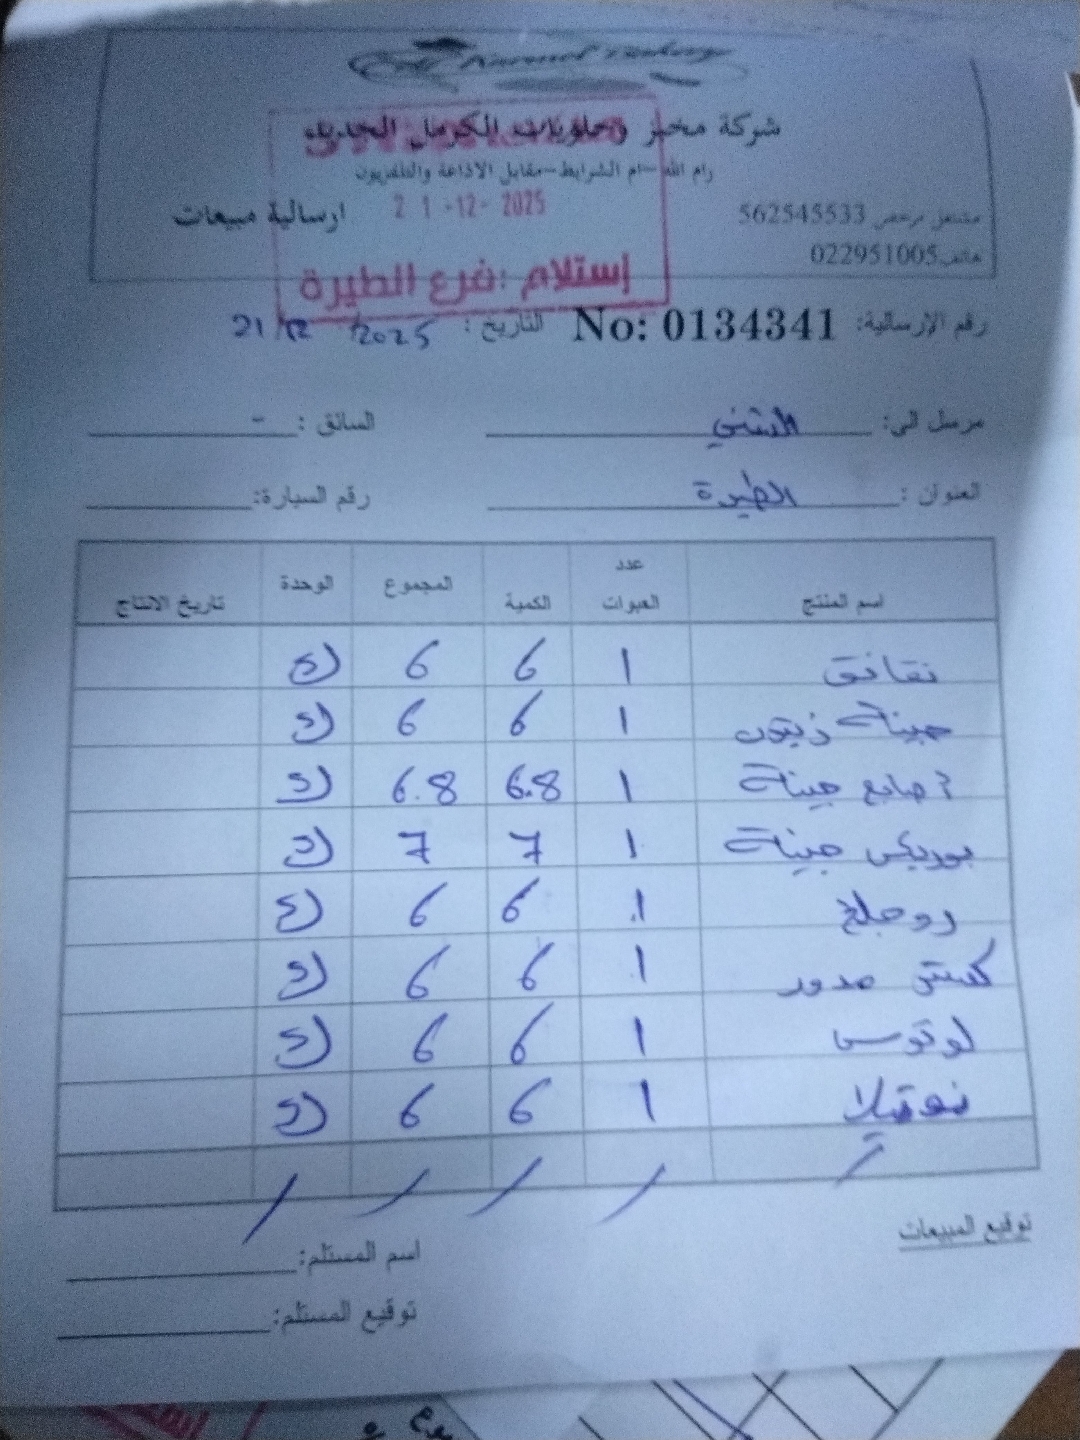 Karmel Bakery
شركة مخبز وحلويات الكرمل الجديد
رام الله -ام الشرايط-مقابل الاذاعة والتلفزيون
مشتغل مرخص 562545533
ارسالية مبيعات
هاتف022951005
21-12-2025
إستلام :فرع الطيرة
رقم الإرسالية: No: 0134341 التاريخ : 21/12/2025
مرسل الى: السائق : -
العنوان : الطيرة رقم السيارة:
اسم المنتج عدد العبوات الكمية المجموع الوحدة تاريخ الانتاج
نقانق 1 6 6 ك
جبنة زيتون 1 6 6 ك
اصابع جبنة 1 6.8 6.8 ك
بوريكس جبنة 1 7 7 ك
روجلخ 1 6 6 ك
مدور 1 6 6 ك
لوتوس 1 6 6 ك
نوتيلا 1 6 6 ك
/ / / / /
توقيع المبيعات
اسم المستلم:
توقيع المستلم: